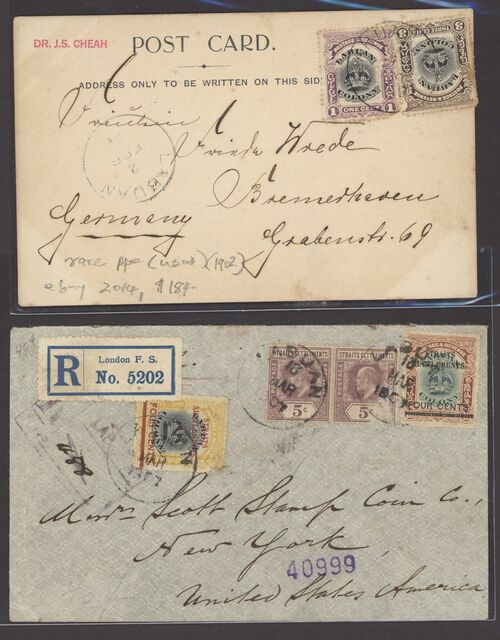 DR. J.S. CHEAH
POST CARD.
ADDRESS ONLY TO BE WRITTEN ON THIS SID
LABUAN
COLONY
1 ONE CENT 1
3
LABUAN
COLONY
LABUAN
2
FEB
Fräulein
Frieda Wrede
Bremerhaven
Germany
Grabenstr. 69
rare ppc (used) (1902)
ebay 2014, $184-
R
London F. S.
No. 5202
STRAITS SETTLEMENTS
5c
STRAITS SETTLEMENTS
5c
STRAITS
SETTLEMENTS.
COLONY
FOUR CENTS
FOUR CENTS
MAR
MAR
1907
Messrs Scott Stamp Coin Co.,
New York,
40999
United States America